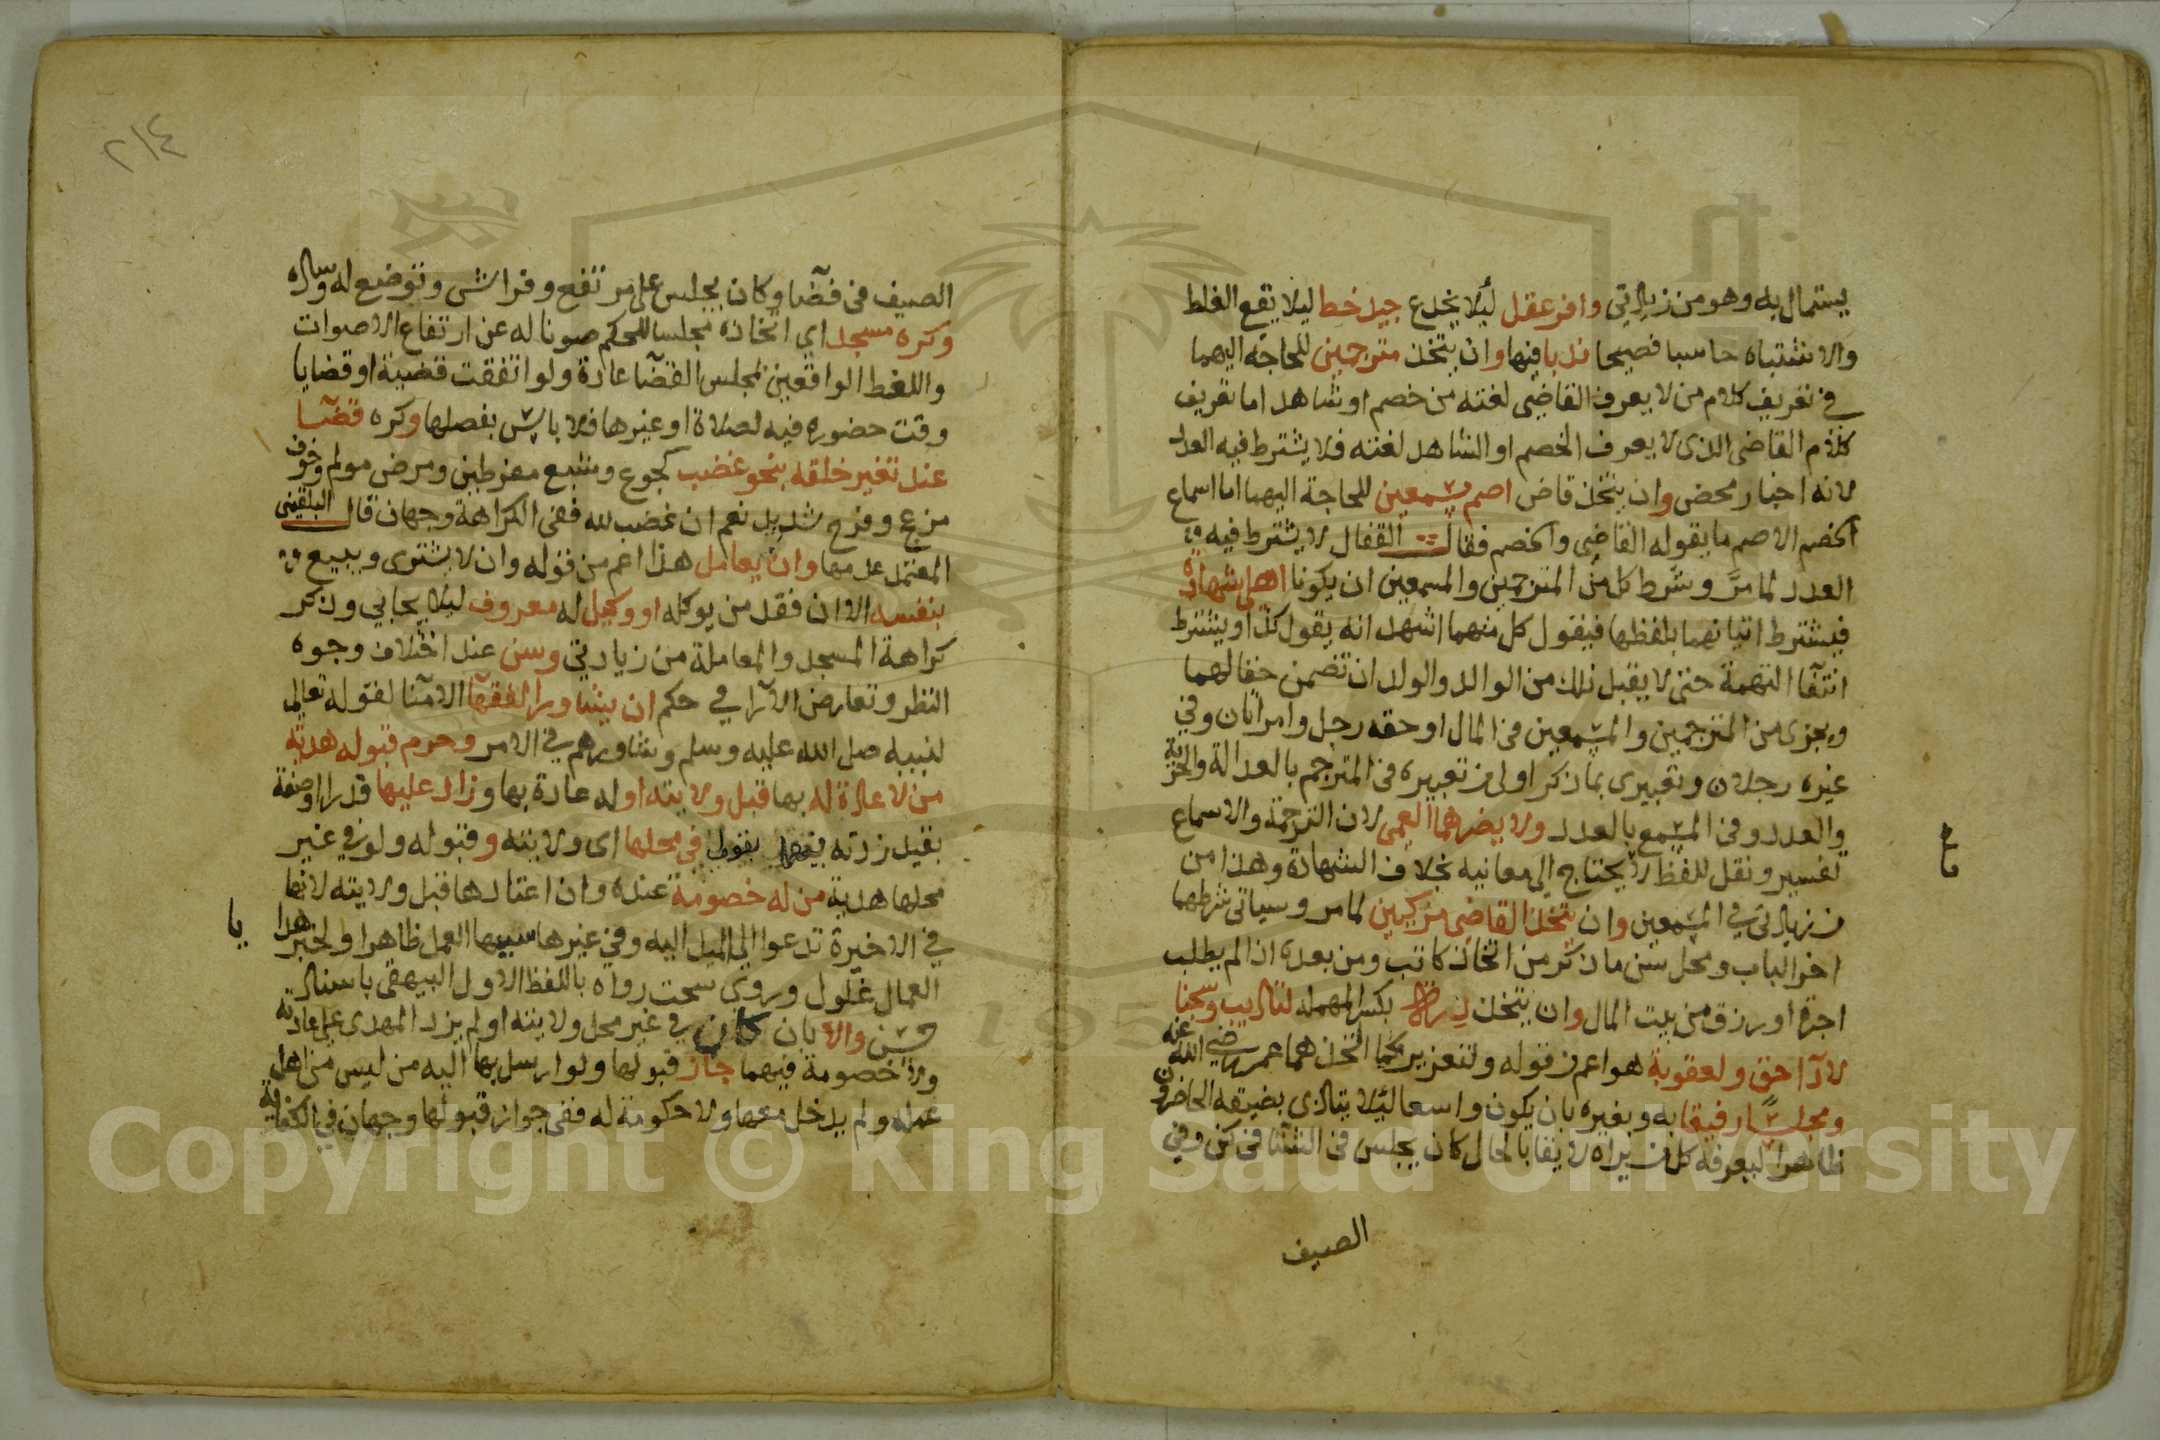 يستمال به وهو من زيادتي وافر عقل لئلا يخدع جيد خط ليلا يقع الغلط
والاشتباه حاسبا فصيحا ندبا فيها وان يتخذ مترجمين للحاجة اليهما
في تعريف كلام من لا يعرف القاضي لغته من خصم او شاهد اما تعريف
كلام القاضي الذي لا يعرف الخصم او الشاهد لغته فلا يشترط فيه العدد
لانه اخبار محض وان يتخذ قاض اصم مسمعين للحاجة اليهما اما اسماع
الخصم الاصم ما يقوله القاضي والخصم فقال القفال لا يشترط فيه
العدد لما مر وشرط كل من المترجمين والمسمعين ان يكونا اهلي شهادة
فيشترط اتيانهما بلفظها فيقول كل منهما اشهد انه يقول كذا ويشترط
انتفآ التهمة حتى لا يقبل ذلك من الوالد والولد ان تضمن حقا لهما
ويجزي من المترجمين والمسمعين في المال او حقه رجل وامراتان وفي
غيره رجلان وتعبيري بما ذكر اولى من تعبيره في المترجم بالعدالة والحرية
والعدد وفي المسمع بالعدد ولا يضرهما العمى لان الترجمة والاسماع
تفسير ونقل للفظ لا يحتاج الى معانيه بخلاف الشهادة وهذا من
من زيادتي في المسمعين وان يتخذ القاضي مزكيين لما مر وسياتي شرطهما
اخر الباب ومحل سن ما ذكر من اتخاذ كاتب ومن بعده اذا لم يطلب
اجرة او رزق من بيت المال وان يتخذ درة بكسر المهملة لتاديب وسجنا
لادآ حق ولعقوبة هو اعم من قوله ولتعزير كما اتخذهما عمر رضي الله عنه
ومجلسا رفيقا به وبغيره بان يكون واسعا لئلا يتاذى بضيقه الحاضرون
ظاهرا ليعرفه كل من يراه لايقا بالحال كان يجلس في الشتآ في كن وفي
الصيف
٢١٤
الصيف في فضآ وكان يجلس على مرتفع وفراش وتوضع له وسادة
وكره مسجد اي اتخاذه مجلسا للحكم صونا له عن ارتفاع الاصوات
واللغط الواقعين لمجلس القضآ عادة ولو اتفقت قضية او قضايا
وقت حضوره فيه لصلاة او غيرها فلا باس بفصلها وكره قضآ
عند تغير خلقه بنحو غضب كجوع وشبع مفرطين ومرض مولم وخوف
مزعج وفرح شديد نعم ان غضب لله ففي الكراهة وجهان قال البلقيني
المعتمد عدمها وان يعامل هذا اعم من قوله وان لا يشتري ويبيع
بنفسه الا ان فقد من يوكله او وكيل له معروف ليلا يحابي وذكر
كراهة المسجد والمعاملة من زيادتي وسن عند اختلاف وجوه
النظر وتعارض الآرا في حكم ان يشاور الفقهآ الامنآ لقوله تعالى
لنبيه صلى الله عليه وسلم وشاورهم في الامر وحرم قبوله هدية
من لا عادة له بها قبل ولايته او له عادة بها وزاد عليها قدرا او صفة
بقيد زدته بقولي في محلها اي ولايته وقبوله ولو في غير
محلها هدية من له خصومة عنده وان اعتادها قبل ولايته لانها
في الاخيرة تدعوا الى الميل اليه وفي غيرها سببها العمل ظاهرا ولخبر هدايا
العمال غلول وروى سحت رواه باللفظ الاول البيهقي باسناد
حسن والا بان كان في غير محل ولايته او لم يزد المهدي على عادته
ولا خصومة فيهما جاز قبولها ولو ارسل بها اليه من ليس من اهل
عمله ولم يدخل معها ولا حكومة له ففي جواز قبولها وجهان في الكفاية